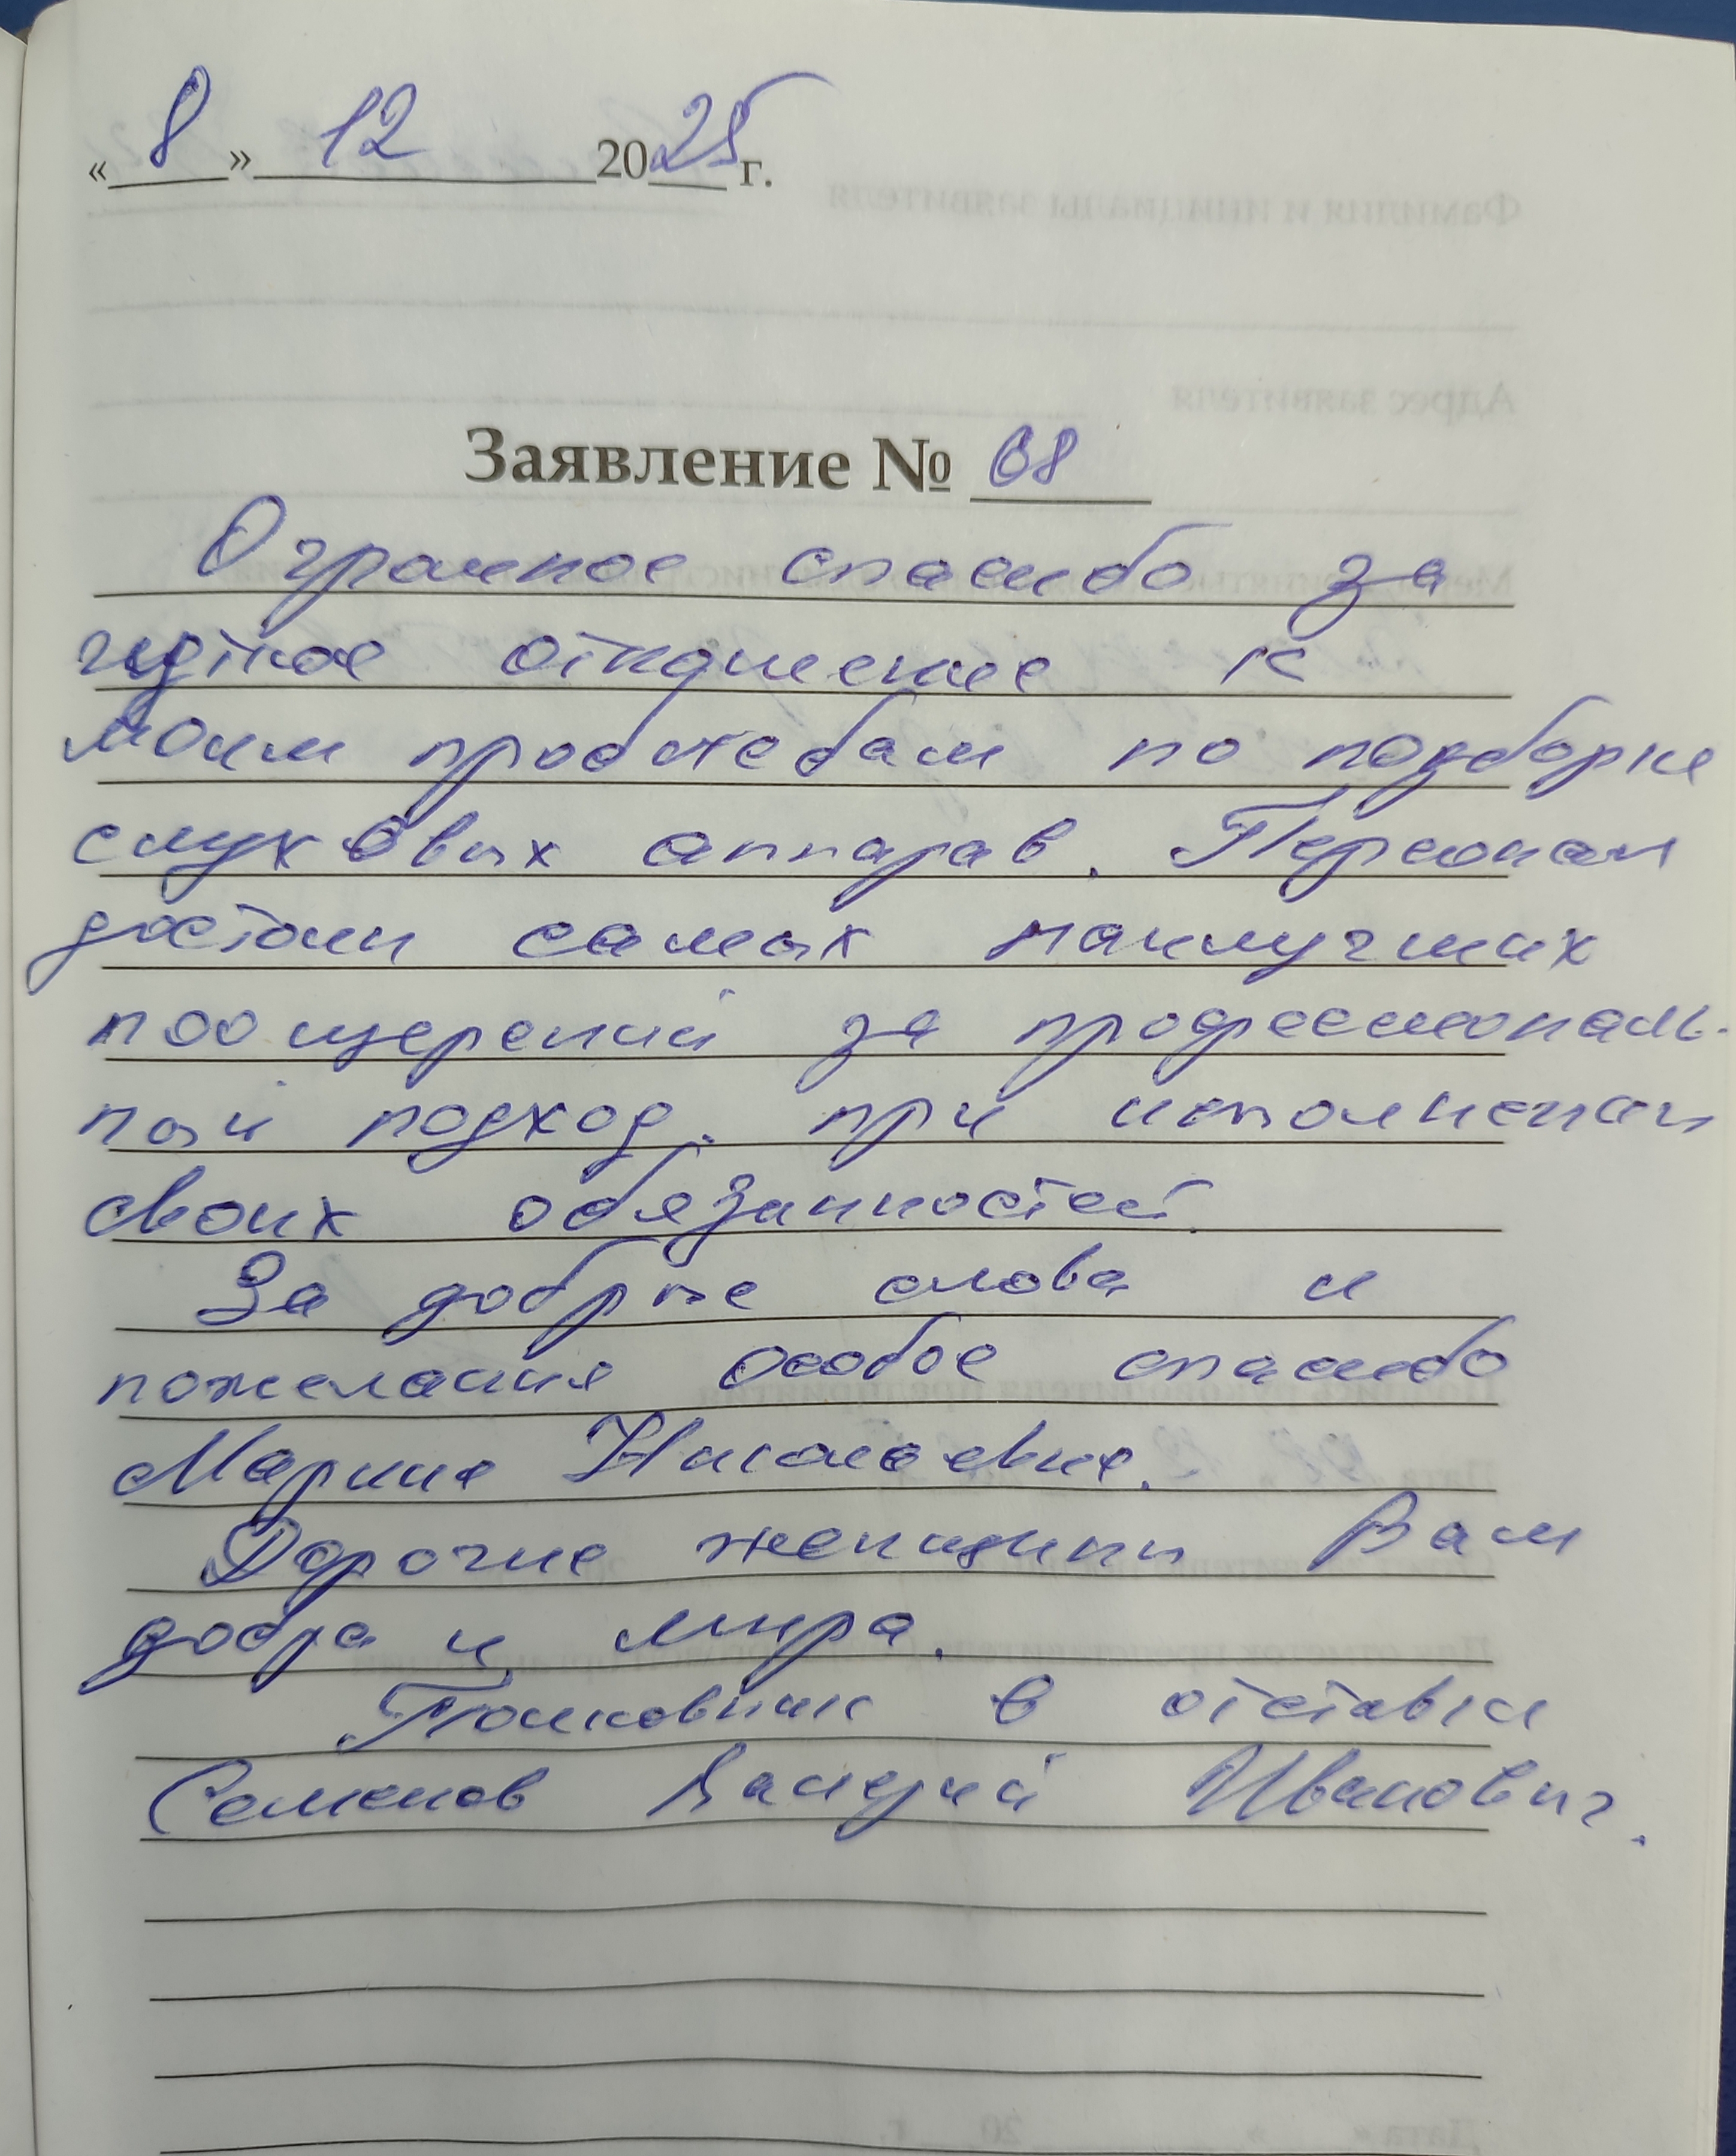 « 8 » 12 2025 г.
Заявление № 08
Огромное спасибо за
чуткое отношение к
моим просьбам по подборке
слуховых аппарав. Персонал
достоин самых наилучших
поощрений за профессиональ-
ный подход при исполнении
своих обязанностей.
За добрые слова и
пожелания особое спасибо
Марине Николаевне.
Дорогие женщины Вам
добра и мира.
Полковник в отставки
Семенов Валерий Иванович.